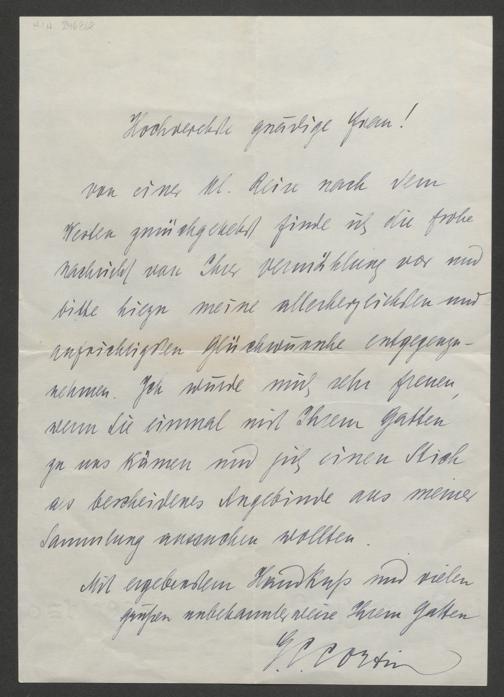 Hochverehrte gnädige Frau!
von einer kl. Reise nach dem
Westen zurückgekehrt finde ich die frohe
Nachricht von Ihrer Vermählung vor und
bitte hiezu meine allerherzlichsten und
aufrichtigsten Glückwünsche entgegenzu-
nehmen. Ich würde mich sehr freuen,
wenn Sie einmal mit Ihrem Gatten
zu uns kämen und sich einen Stich
als bescheidenes Angebinde aus meiner
Sammlung aussuchen wollten.
Mit ergebenstem Handkuß und vielen
Grüßen unbekannterweise Ihrem Gatten